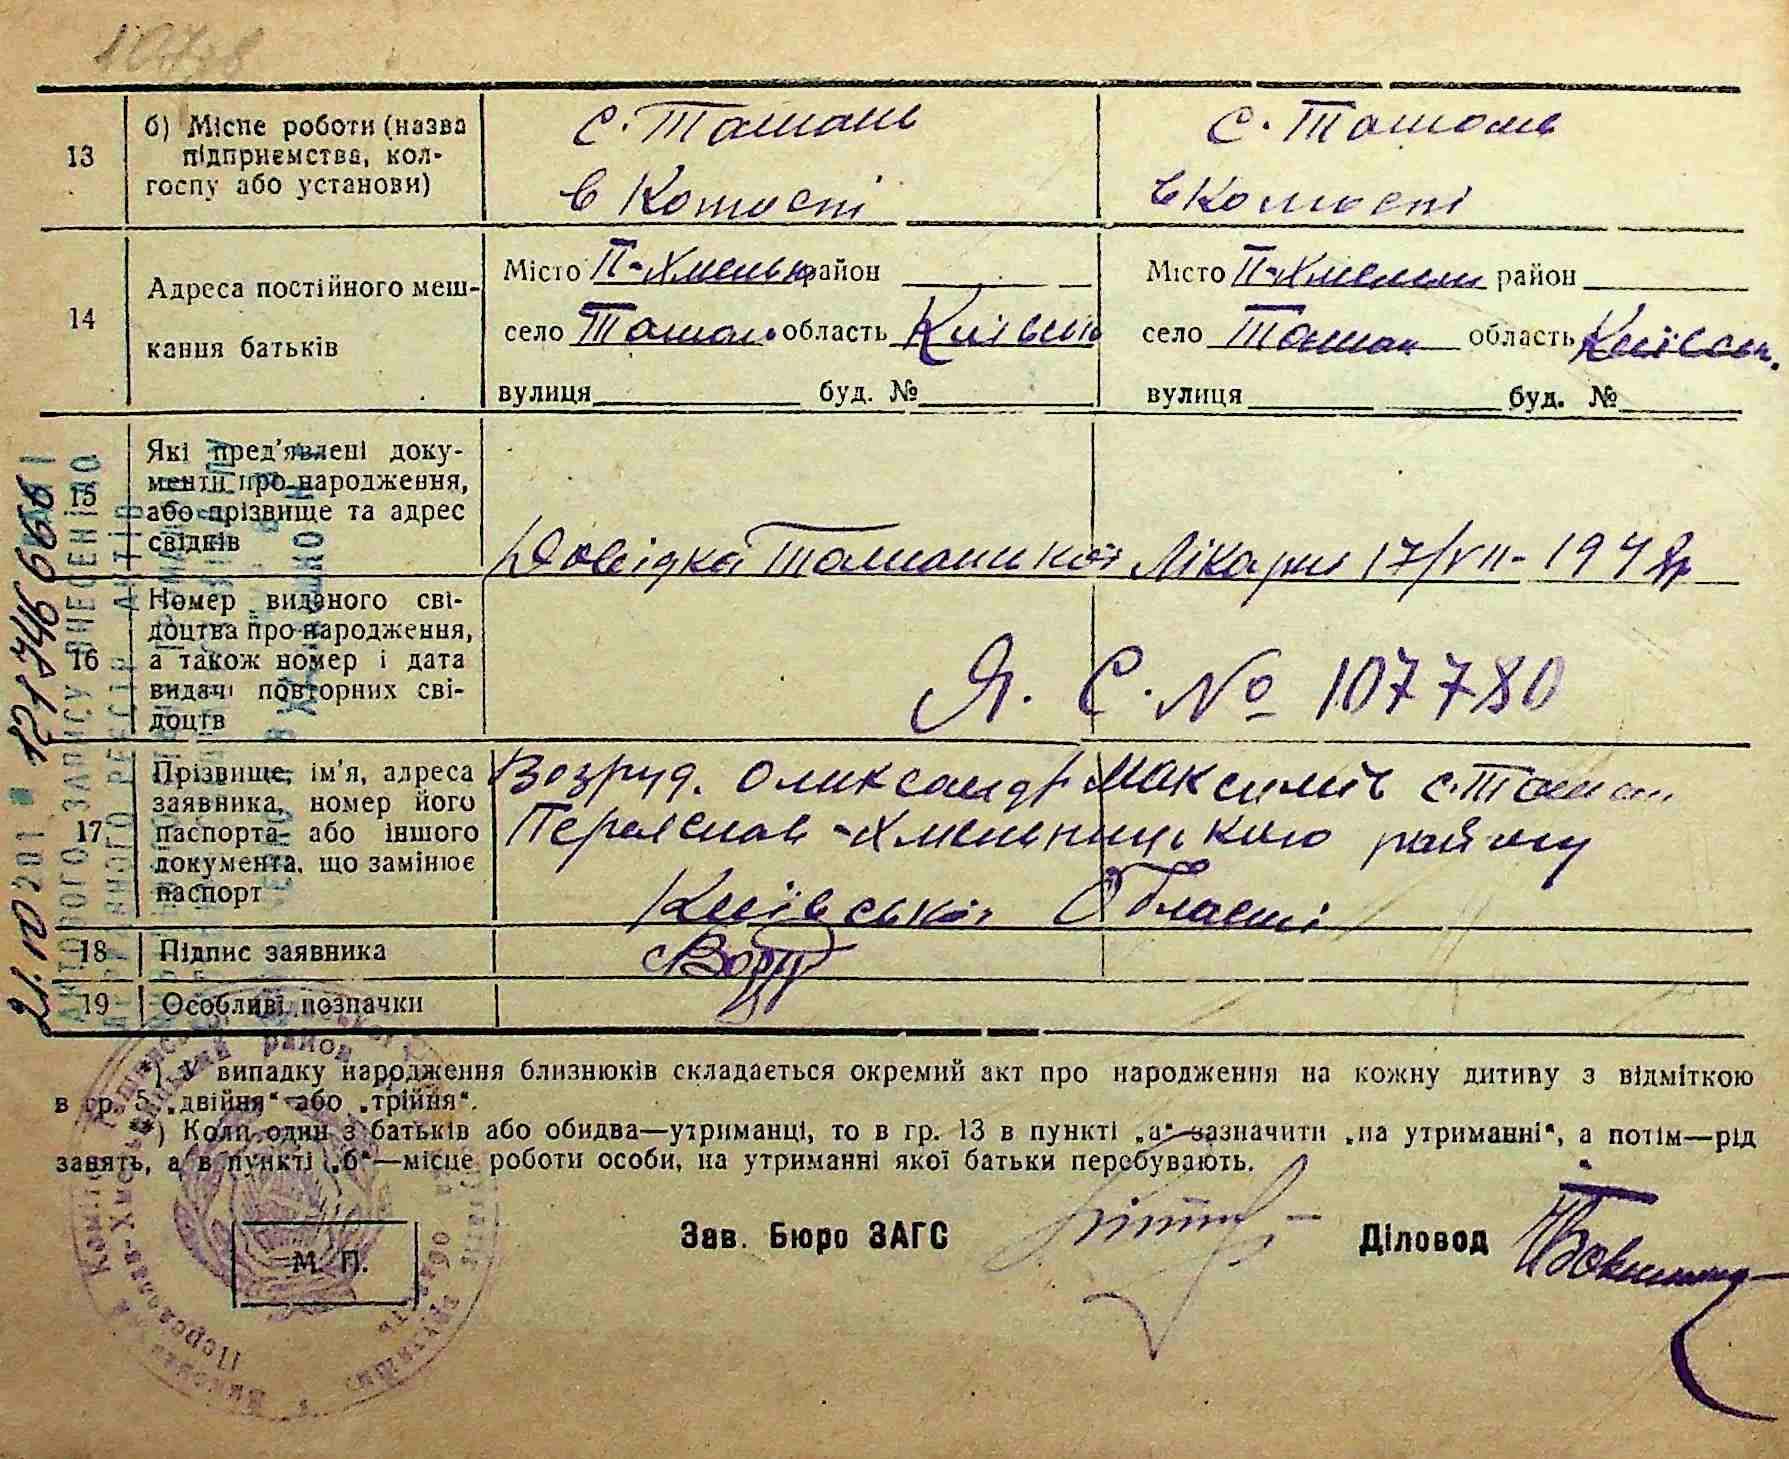 13
б) Місце роботи (назва
підприємства, кол-
госпу або установи)
с. Ташань
в Комисті
с. Ташань
в Комисті
14
Адреса постійного меш-
кання батьків
Місто П-Хмельн район
село Ташань область Київськ
вулиця буд. №
Місто П-Хмельн район
село Ташан область Київськ.
вулиця буд. №
15
Які пред'явлені доку-
менти про народження,
або прізвище та адрес
свідків
Довідка Ташанської Лікарні 17/VII-1948р
16
Номер виданого сві-
доцтва про народження,
а також номер і дата
видачі повторних сві-
доцтв
Я. С. № 107780
17
Прізвище, ім'я, адреса
заявника, номер його
паспорта або іншого
документа, що замінює
паспорт
Олександр Максимів с. Ташан
Переяслав-Хмельницького району
Київської Області
18
Підпис заявника
19
Особливі позначки
21.10.201 121746666
АКТОВОГО ЗАПИСУ ВНЕСЕНІ ДО
*) У випадку народження близнюків складається окремий акт про народження на кожну дитину з відміткою
в гр. 5 „двійня“ або „трійня“.
**) Коли один з батьків або обидва—утриманці, то в гр. 13 в пункті „а“ зазначити „на утриманні“, а потім—рід
занять, а в пункті „б“—місце роботи особи, на утриманні якої батьки перебувають.
Зав. Бюро ЗАГС
Діловод
М. П.